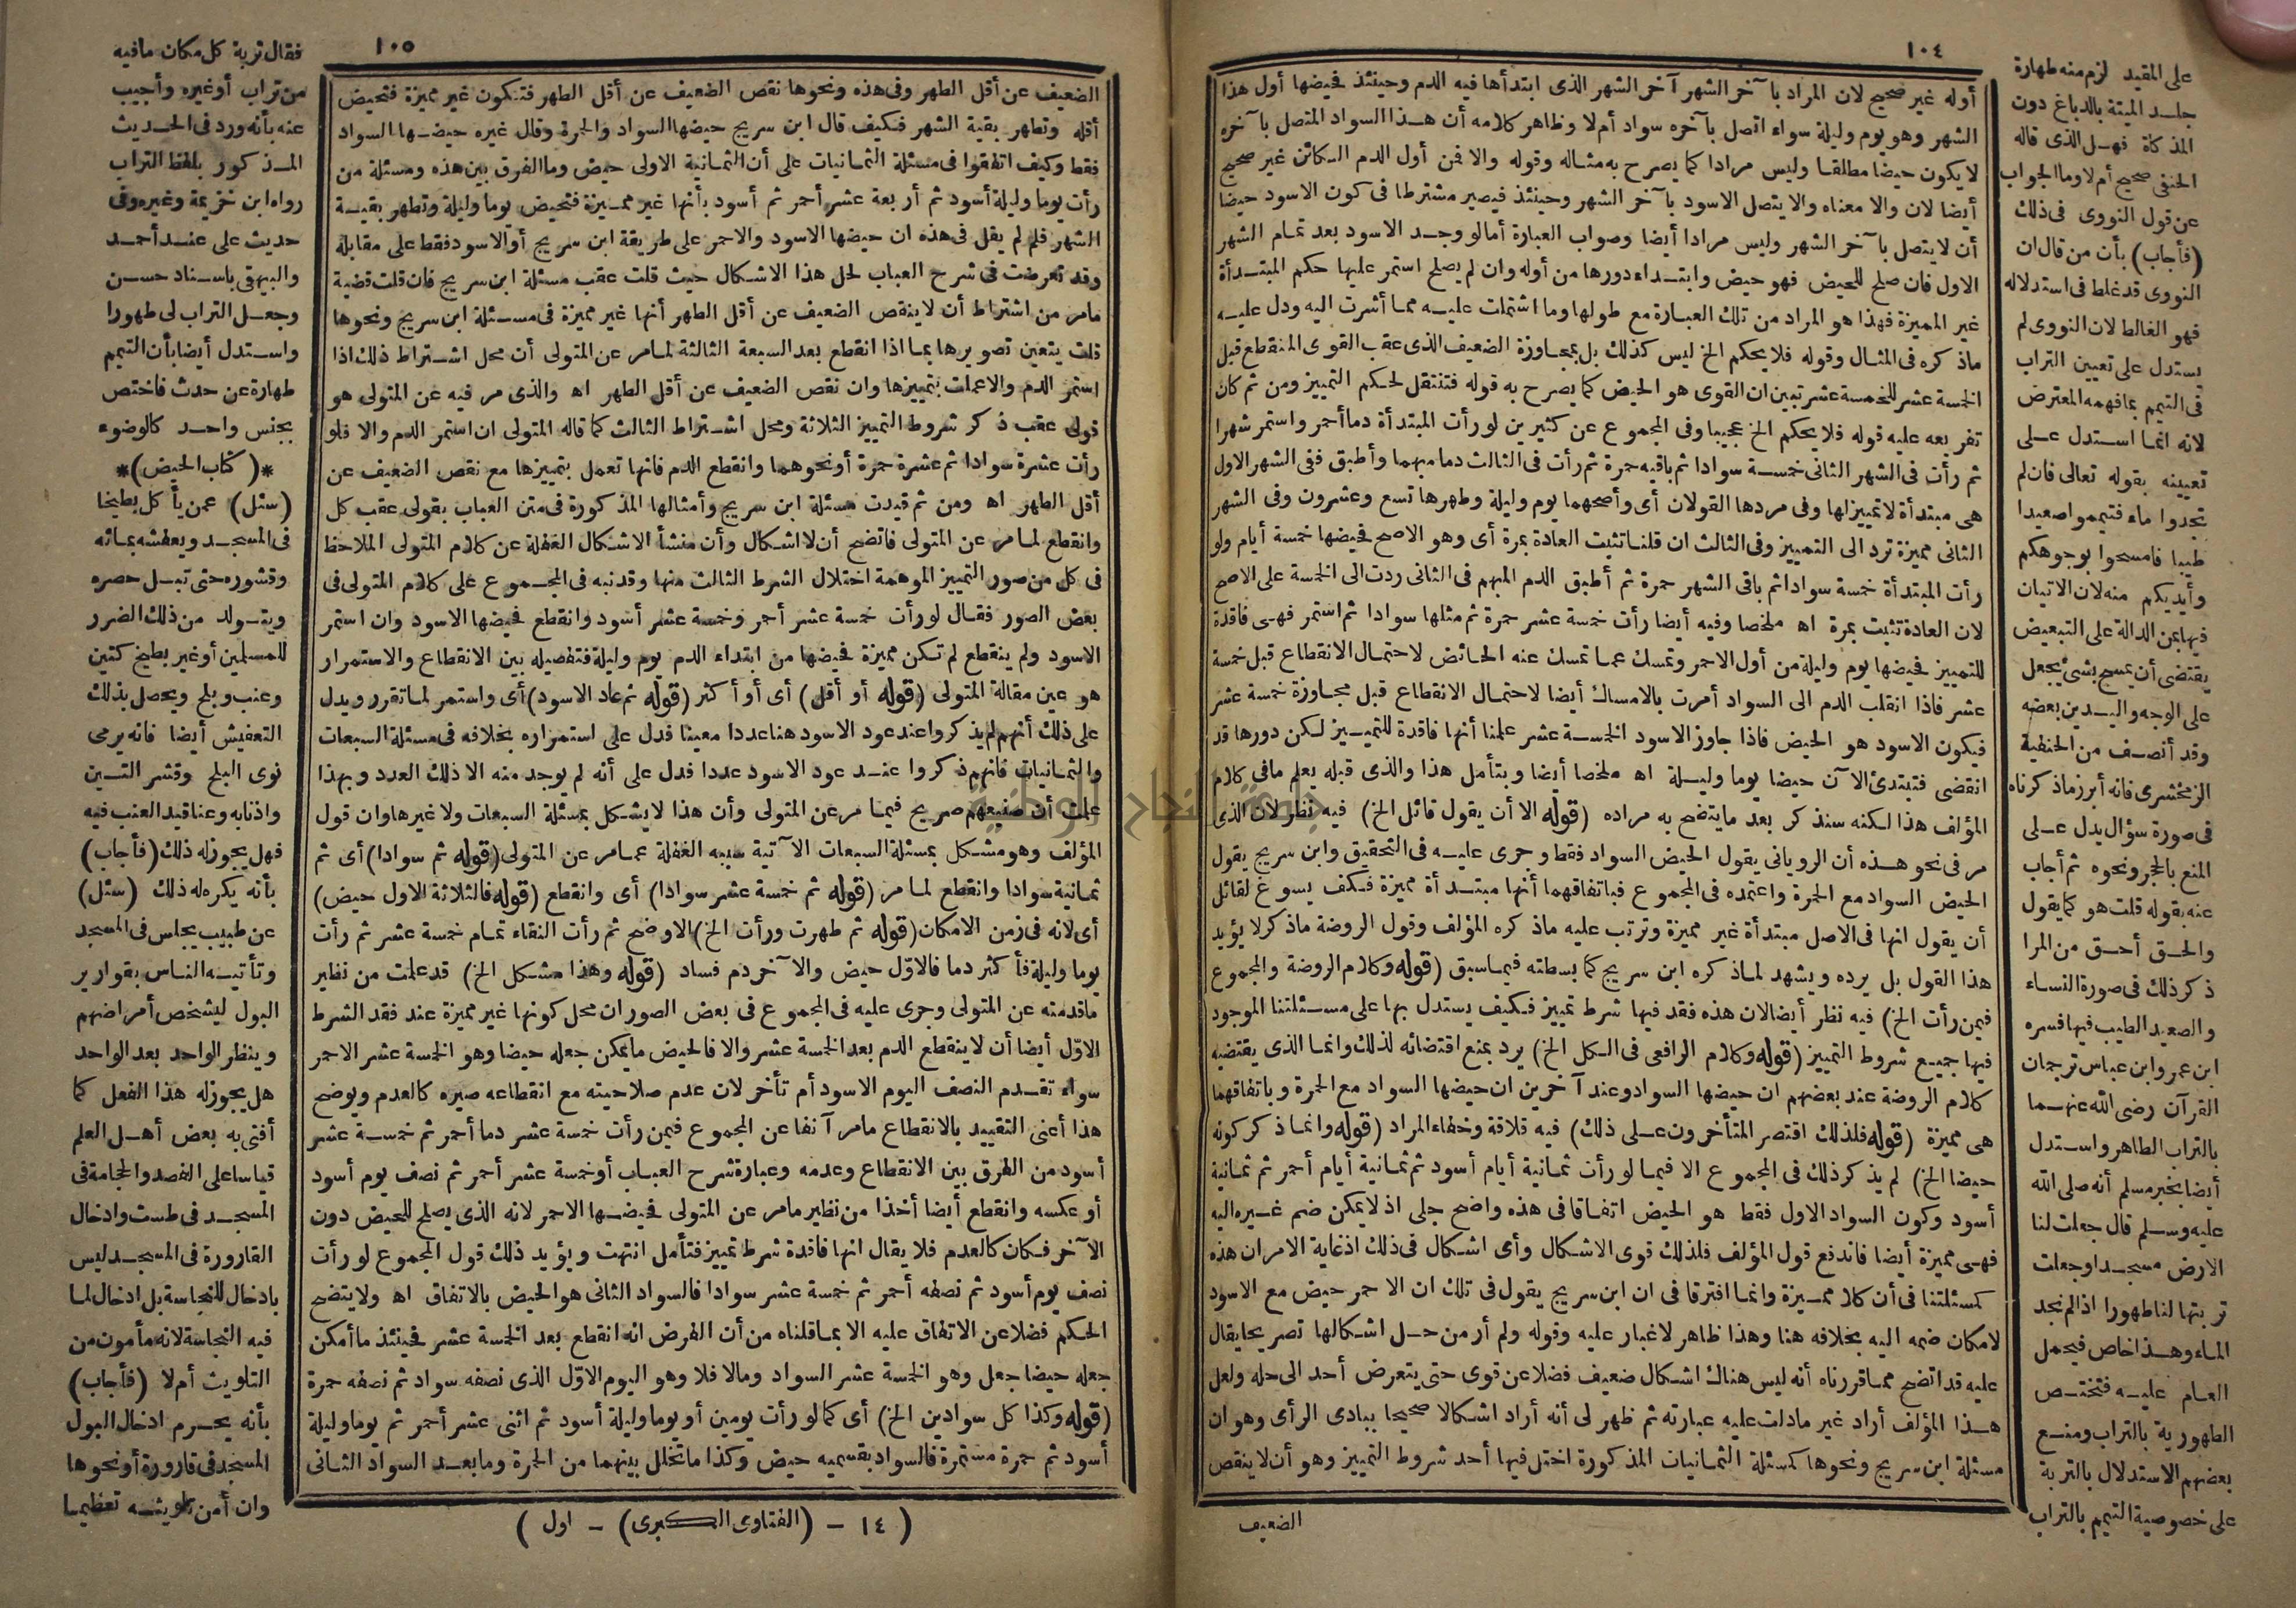 ١٠٤
أوله غير صحيح لان المراد بآخر الشهر آخر الشهر الذى ابتدأها فيه الدم وحينئذ فحيضها أول هذا
الشهر وهو يوم وليلة سواء اتصل بآخره سواد أم لا وظاهر كلامه أن هذا السواد المتصل بآخره
لا يكون حيضا مطلقا وليس مرادا كما يصرح به مثاله وقوله والا فمن أول الدم الكائن غير صحيح
أيضا لان والا معناه والا يتصل الاسود بآخر الشهر وحينئذ فيصير مشترطا فى كون الاسود حيضا
أن لا يتصل بآخر الشهر وليس مرادا أيضا وصواب العبارة أما لو وجد الاسود بعد تمام الشهر
الاول فان صلح للحيض فهو حيض وابتداء دورها من أوله وان لم يصلح استمر عليها حكم المبتدأة
غير المميزة فهذا هو المراد من تلك العبارة مع طولها وما اشتملت عليه مما أشرت اليه ودل عليه
ماذكره فى المثال وقوله فلا يحكم الخ ليس كذلك بل بمجاوزة الضعيف الذى عقب القوى المنقطع قبل
الخمسة عشر للخمسة عشر تبين ان القوى هو الحيض كما يصرح به قوله فتنتقل لحكم التمييز ومن ثم كان
تفريعه عليه قوله فلا يحكم الخ عجيبا وفى المجموع عن كثيرين لو رأت المبتدأة دما أحمر واستمر شهرا
ثم رأت فى الشهر الثانى خمسة سوادا ثم باقيه حمرة ثم رأت فى الثالث دما مبهما وأطبق ففى الشهر الاول
هى مبتدأة لا تمييز لها وفى مردها القولان أى وأصحهما يوم وليلة وطهرها تسع وعشرون وفى الشهر
الثانى مميزة ترد الى التمييز وفى الثالث ان قلنا تثبت العادة بمرة أى وهو الاصح فحيضها خمسة أيام ولو
رأت المبتدأة خمسة سوادا ثم باقى الشهر حمرة ثم أطبق الدم المبهم فى الثانى ردت الى الخمسة على الاصح
لان العادة تثبت بمرة اه ملخصا وفيه أيضا رأت خمسة عشر حمرة ثم مثلها سوادا ثم استمر فهى فاقدة
للتمييز فحيضها يوم وليلة من أول الاحمر وتمسك عما تمسك عنه الحائض لاحتمال الانقطاع قبل خمسة
عشر فاذا انقلب الدم الى السواد أمرت بالامساك أيضا لاحتمال الانقطاع قبل مجاوزة خمسة عشر
فيكون الاسود هو الحيض فاذا جاوز الاسود الخمسة عشر علمنا أنها فاقدة للتمييز لكن دورها قد
انقضى فتبتدئ الآن حيضا يوما وليلة اه ملخصا أيضا وبتأمل هذا والذى قبله يعلم مافى كلام
المؤلف هذا لكنه سنذكر بعد مايتضح به مراده (قوله الا أن يقول قائل الخ) فيه نظر لان الذى
مر فى نحو هذه أن الرويانى يقول الحيض السواد فقط وجرى عليه فى التحقيق وابن سريج يقول
الحيض السواد مع الحمرة واعتمده فى المجموع فباتفاقهما أنها مبتدأة مميزة فكيف يسوغ لقائل
أن يقول انها فى الاصل مبتدأة غير مميزة وترتب عليه ماذكره المؤلف وقول الروضة ماذكر لا يؤيد
هذا القول بل يرده ويشهد لماذكره ابن سريج كما بسطته فيماسبق (قوله وكلام الروضة والمجموع
فيمن رأت الخ) فيه نظر أيضا لان هذه فقد فيها شرط تمييز فكيف يستدل بها على مسئلتنا الموجود
فيها جميع شروط التمييز (قوله وكلام الرافعى فى الكل الخ) يرد بمنع اقتضائه لذلك وانما الذى يقتضيه
كلام الروضة عند بعضهم ان حيضها السواد وعند آخرين ان حيضها السواد مع الحمرة وباتفاقهما
هى مميزة (قوله فلذلك اقتصر المتأخرون على ذلك) فيه قلاقة وخفاء المراد (قوله وانما ذكر كونه
حيضا الخ) لم يذكر ذلك فى المجموع الا فيما لو رأت ثمانية أيام أسود ثم ثمانية أيام أحمر ثم ثمانية
أسود وكون السواد الاول فقط هو الحيض اتفاقا فى هذه واضح جلى اذ لا يمكن ضم غيره اليه
فهى مميزة أيضا فاندفع قول المؤلف فلذلك قوى الاشكال وأى اشكال فى ذلك اذ غاية الامر ان هذه
كمسئلتنا فى أن كلا مميزة وانما افترقا فى ان ابن سريج يقول فى تلك ان الاحمر حيض مع الاسود
لامكان ضمه اليه بخلافه هنا وهذا ظاهر لا غبار عليه وقوله ولم أر من حل اشكالها تصريحا يقال
عليه قد اتضح مما قررناه أنه ليس هناك اشكال ضعيف فضلا عن قوى حتى يتعرض أحد الى حله ولعل
هذا المؤلف أراد غير مادلت عليه عبارته ثم ظهر لى أنه أراد اشكالا صحيحا ببادى الرأى وهو ان
مسئلة ابن سريج ونحوها كمسئلة الثمانيات المذكورة اختل فيها أحد شروط التمييز وهو أن لا ينقص
الضعيف
على المقيد لزم منه طهارة
جلد الميتة بالدباغ دون
المذكاة فهل الذى قاله
الحنفى صحيح أم لا وما الجواب
عن قول النووى فى ذلك
(فأجاب) بأن من قال ان
النووى قد غلط فى استدلاله
فهو الغالط لان النووى لم
يستدل على تعيين التراب
فى التيمم بما فهمه المعترض
لانه انما استدل على
تعيينه بقوله تعالى فان لم
تجدوا ماء فتيمموا صعيدا
طيبا فامسحوا بوجوهكم
وأيديكم منه لان الاتيان
فيها بمن الدالة على التبعيض
يقتضى أن يمسح بشئ يجعل
على الوجه واليدين بعضه
وقد أنصف من الحنفية
الزمخشرى فانه أبرز ماذكرناه
فى صورة سؤال يدل على
المنع بالحجر ونحوه ثم أجاب
عنه بقوله قلت هو كما يقول
والحق أحق من المرا
ذكر ذلك فى صورة النساء
والصعيد الطيب فيها فسره
ابن عمر وابن عباس ترجمان
القرآن رضى الله عنهما
بالتراب الطاهر واستدل
أيضا بخبر مسلم أنه صلى الله
عليه وسلم قال جعلت لنا
الارض مسجدا وجعلت
تربتها لنا طهورا اذا لم نجد
الماء وهذا خاص فيحمل
العام عليه فتختص
الطهورية بالتراب ومنع
بعضهم الاستدلال بالتربة
على خصوصية التيمم بالتراب
١٠٥
الضعيف عن أقل الطهر وفى هذه ونحوها نقص الضعيف عن أقل الطهر فتكون غير مميزة فتحيض
أقله وتطهر بقية الشهر فكيف قال ابن سريج حيضها السواد والحمرة وقال غيره حيضها السواد
فقط وكيف اتفقوا فى مسئلة الثمانيات على أن الثمانية الاولى حيض وما الفرق بين هذه ومسئلة من
رأت يوما وليلة أسود ثم أربعة عشر أحمر ثم أسود بأنها غير مميزة فتحيض يوما وليلة وتطهر بقية
الشهر فلم لم يقل فى هذه ان حيضها الاسود والاحمر على طريقة ابن سريج أو الاسود فقط على مقابله
وقد تعرضت فى شرح العباب لحل هذا الاشكال حيث قلت عقب مسئلة ابن سريج فان قلت قضية
مامر من اشتراط أن لا ينقص الضعيف عن أقل الطهر أنها غير مميزة فى مسئلة ابن سريج ونحوها
قلت يتعين تصويرها بما اذا انقطع بعد السبعة الثالثة لما مر عن المتولى أن محل اشتراط ذلك اذا
استمر الدم والا عملت بتمييزها وان نقص الضعيف عن أقل الطهر اه والذى مر فيه عن المتولى هو
قولى عقب ذكر شروط التمييز الثلاثة ومحل اشتراط الثالث كما قاله المتولى ان استمر الدم والا فلو
رأت عشرة سوادا ثم عشرة حمرة أو نحوهما وانقطع الدم فانها تعمل بتمييزها مع نقص الضعيف عن
أقل الطهر اه ومن ثم قيدت مسئلة ابن سريج وأمثالها المذكورة فى متن العباب بقولى عقب كل
وانقطع لما مر عن المتولى فاتضح أن لا اشكال وأن منشأ الاشكال الغفلة عن كلام المتولى الملاحظ
فى كل من صور التمييز الموهمة اختلال الشرط الثالث منها وقد نبه فى المجموع على كلام المتولى فى
بعض الصور فقال لو رأت خمسة عشر أحمر وخمسة عشر أسود وانقطع فحيضها الاسود وان استمر
الاسود ولم ينقطع لم تكن مميزة فحيضها من ابتداء الدم يوم وليلة فتفصيله بين الانقطاع والاستمرار
هو عين مقالة المتولى (قوله أو أقل) أى أو أكثر (قوله ثم عاد الاسود) أى واستمر لما تقرر ويدل
على ذلك أنهم لم يذكروا عند عود الاسود هنا عددا معينا فدل على استمراره بخلافه فى مسئلة السبعات
والثمانيات فانهم ذكروا عند عود الاسود عددا فدل على أنه لم يوجد منه الا ذلك العدد وبهذا
علمت أن صنيعهم صريح فيما مر عن المتولى وأن هذا لا يشكل بمسئلة السبعات ولا غيرها وان قول
المؤلف وهو مشكل بمسئلة السبعات الآتية سببه الغفلة عما مر عن المتولى (قوله ثم سوادا) أى ثم
ثمانية سوادا وانقطع لما مر (قوله ثم خمسة عشر سوادا) أى وانقطع (قوله فالثلاثة الاول حيض)
أى لانه فى زمن الامكان (قوله ثم طهرت ورأت الخ) الاوضح ثم رأت النقاء تمام خمسة عشر ثم رأت
يوما وليلة فأكثر دما فالاول حيض والآخر دم فساد (قوله وهذا مشكل الخ) قد علمت من نظير
ماقدمته عن المتولى وجرى عليه فى المجموع فى بعض الصور ان محل كونها غير مميزة عند فقد الشرط
الاول أيضا أن لا ينقطع الدم بعد الخمسة عشر والا فالحيض ما يمكن جعله حيضا وهو الخمسة عشر الاحمر
سواء تقدم النصف اليوم الاسود أم تأخر لان عدم صلاحيته مع انقطاعه صيره كالعدم ويوضح
هذا أعنى التقييد بالانقطاع مامر آنفا عن المجموع فيمن رأت خمسة عشر دما أحمر ثم خمسة عشر
أسود من الفرق بين الانقطاع وعدمه وعبارة شرح العباب أو خمسة عشر أحمر ثم نصف يوم أسود
أو عكسه وانقطع أيضا أخذا من نظير مامر عن المتولى فحيضها الاحمر لانه الذى يصلح للحيض دون
الآخر فكان كالعدم فلا يقال انها فاقدة شرط تمييز فتأمل انتهت ويؤيد ذلك قول المجموع لو رأت
نصف يوم أسود ثم نصفه أحمر ثم خمسة عشر سوادا فالسواد الثانى هو الحيض بالاتفاق اه ولا يتضح
الحكم فضلا عن الاتفاق عليه الا بما قلناه من أن الفرض انه انقطع بعد الخمسة عشر فحينئذ ما أمكن
جعله حيضا جعل وهو الخمسة عشر السواد وما لا فلا وهو اليوم الاول الذى نصفه سواد ثم نصفه حمرة
(قوله وكذا كل سوادين الخ) أى كما لو رأت يومين أو يوما وليلة أسود ثم اثنى عشر أحمر ثم يوما وليلة
أسود ثم حمرة مستمرة فالسواد بقسميه حيض وكذا ما تخلل بينهما من الحمرة وما بعد السواد الثانى
( ١٤ - (الفتاوى الكبرى) - اول )
فقال تربة كل مكان مافيه
من تراب أو غيره وأجيب
عنه بأنه ورد فى الحديث
المذكور بلفظ التراب
رواه ابن خزيمة وغيره وفى
حديث على عند أحمد
والبيهقى باسناد حسن
وجعل التراب لى طهورا
واستدل أيضا بأن التيمم
طهارة عن حدث فاختص
بجنس واحد كالوضوء
*(كتاب الحيض)*
(سئل) عمن يأكل بطيخا
فى المسجد ويعفشه بمائه
وقشوره حتى تبل حصره
ويتولد من ذلك الضرر
للمسلمين أو غير بطيخ كتين
وعنب وبلح ويحصل بذلك
التعفيش أيضا فانه يرمى
نوى البلح وقشر التين
واذنابه وعناقيد العنب فيه
فهل يجوز له ذلك (فأجاب)
بأنه يكره له ذلك (سئل)
عن طبيب يجلس فى المسجد
وتأتيه الناس بقوارير
البول ليشخص أمراضهم
وينظر الواحد بعد الواحد
هل يجوز له هذا الفعل كما
أفتى به بعض أهل العلم
قياسا على الفصد والحجامة فى
المسجد فى طست وادخال
القارورة فى المسجد ليس
بادخال للنجاسة بل ادخال لما
فيه النجاسة لانه مأمون من
التلويث أم لا (فأجاب)
بأنه يحرم ادخال البول
المسجد فى قارورة أو نحوها
وان أمن تلويثه تعظيما